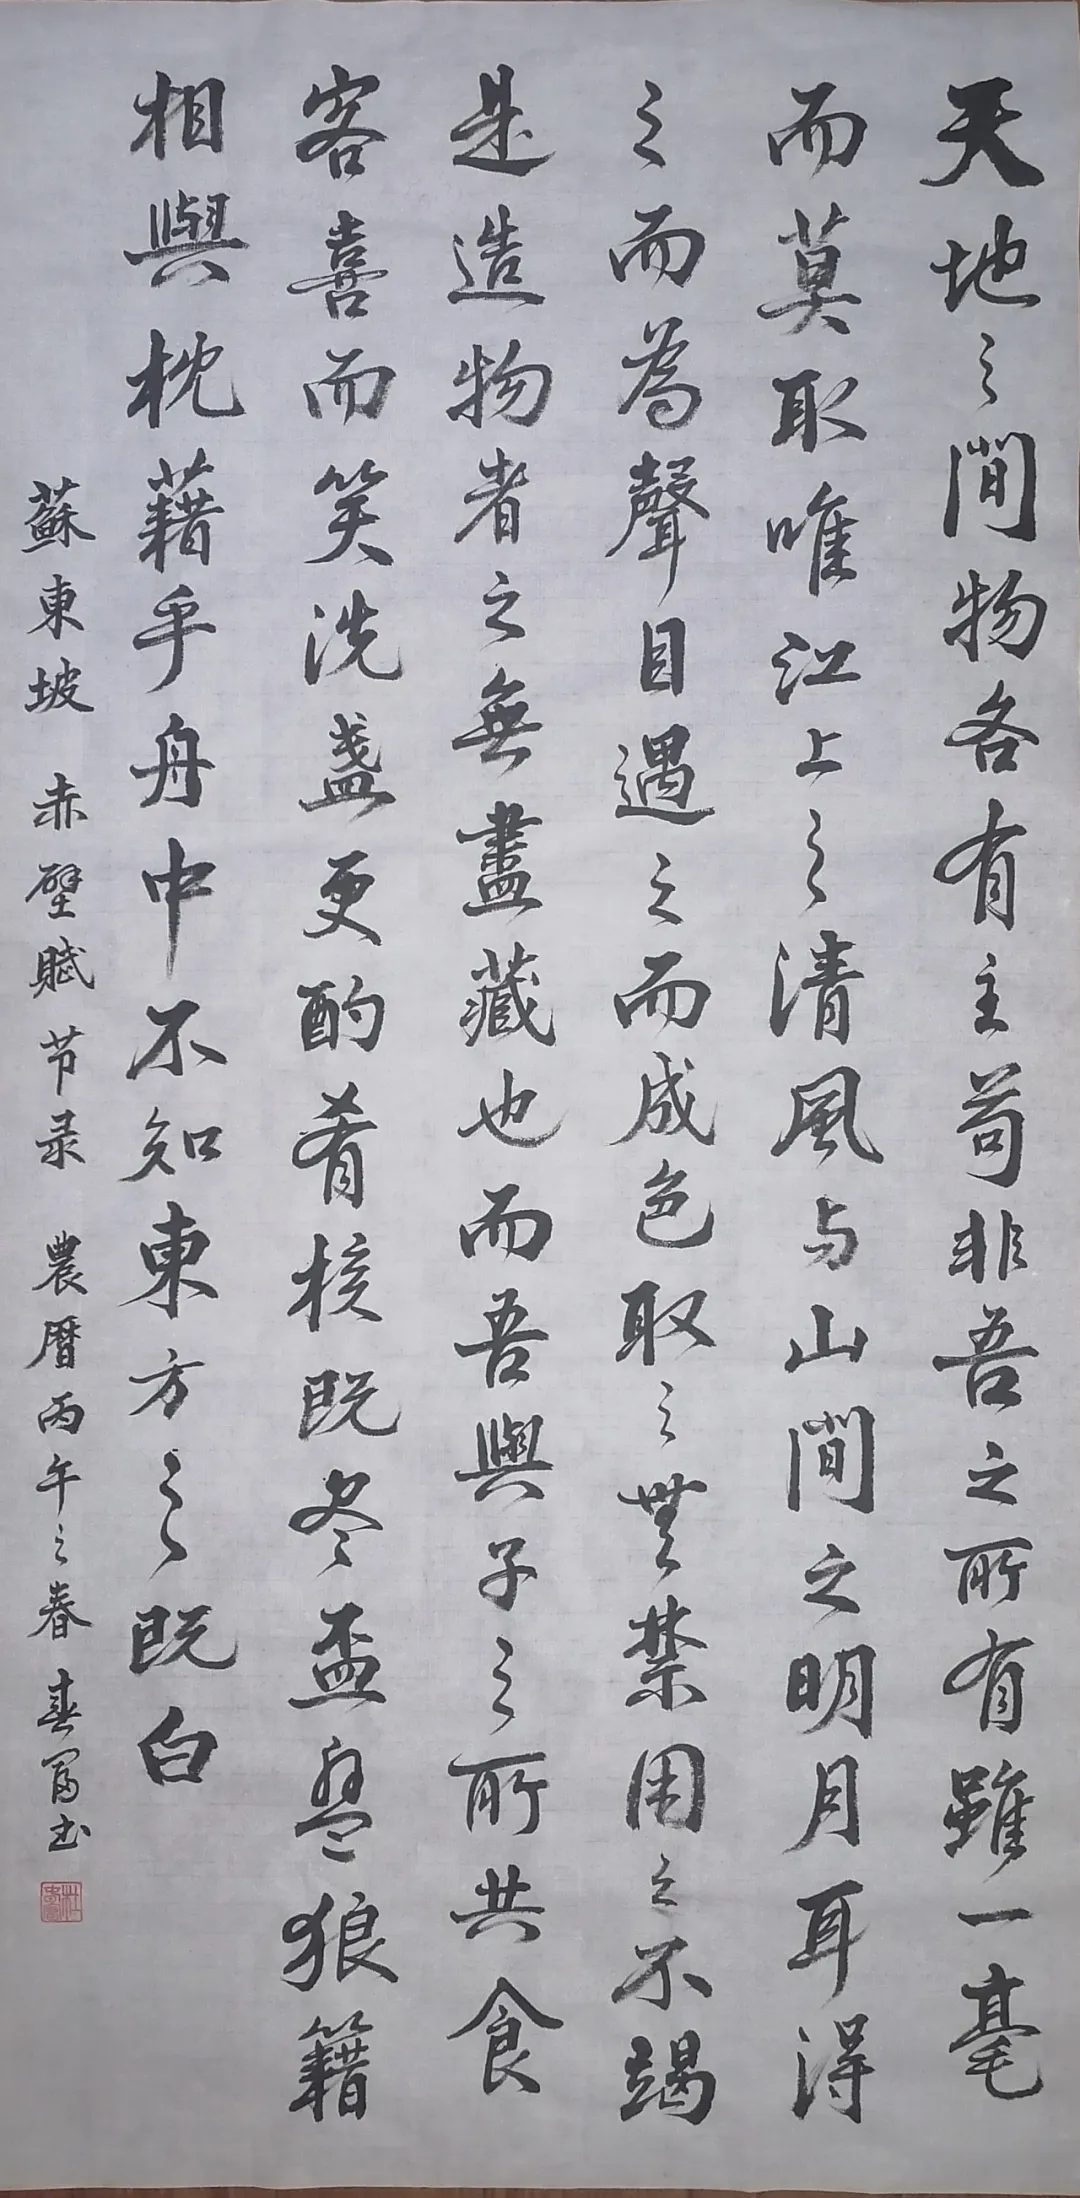 天地之間物各有主苟非吾之所有雖一毫
而莫取唯江上之清風与山間之明月耳得
之而為聲目遇之而成色取之無禁用之不竭
是造物者之無盡藏也而吾與子之所共食
客喜而笑洗盞更酌肴核既尽盃盤狼籍
相與枕藉乎舟中不知東方之既白
蘇東坡 赤壁賦 节录 農曆丙午之春 春富书